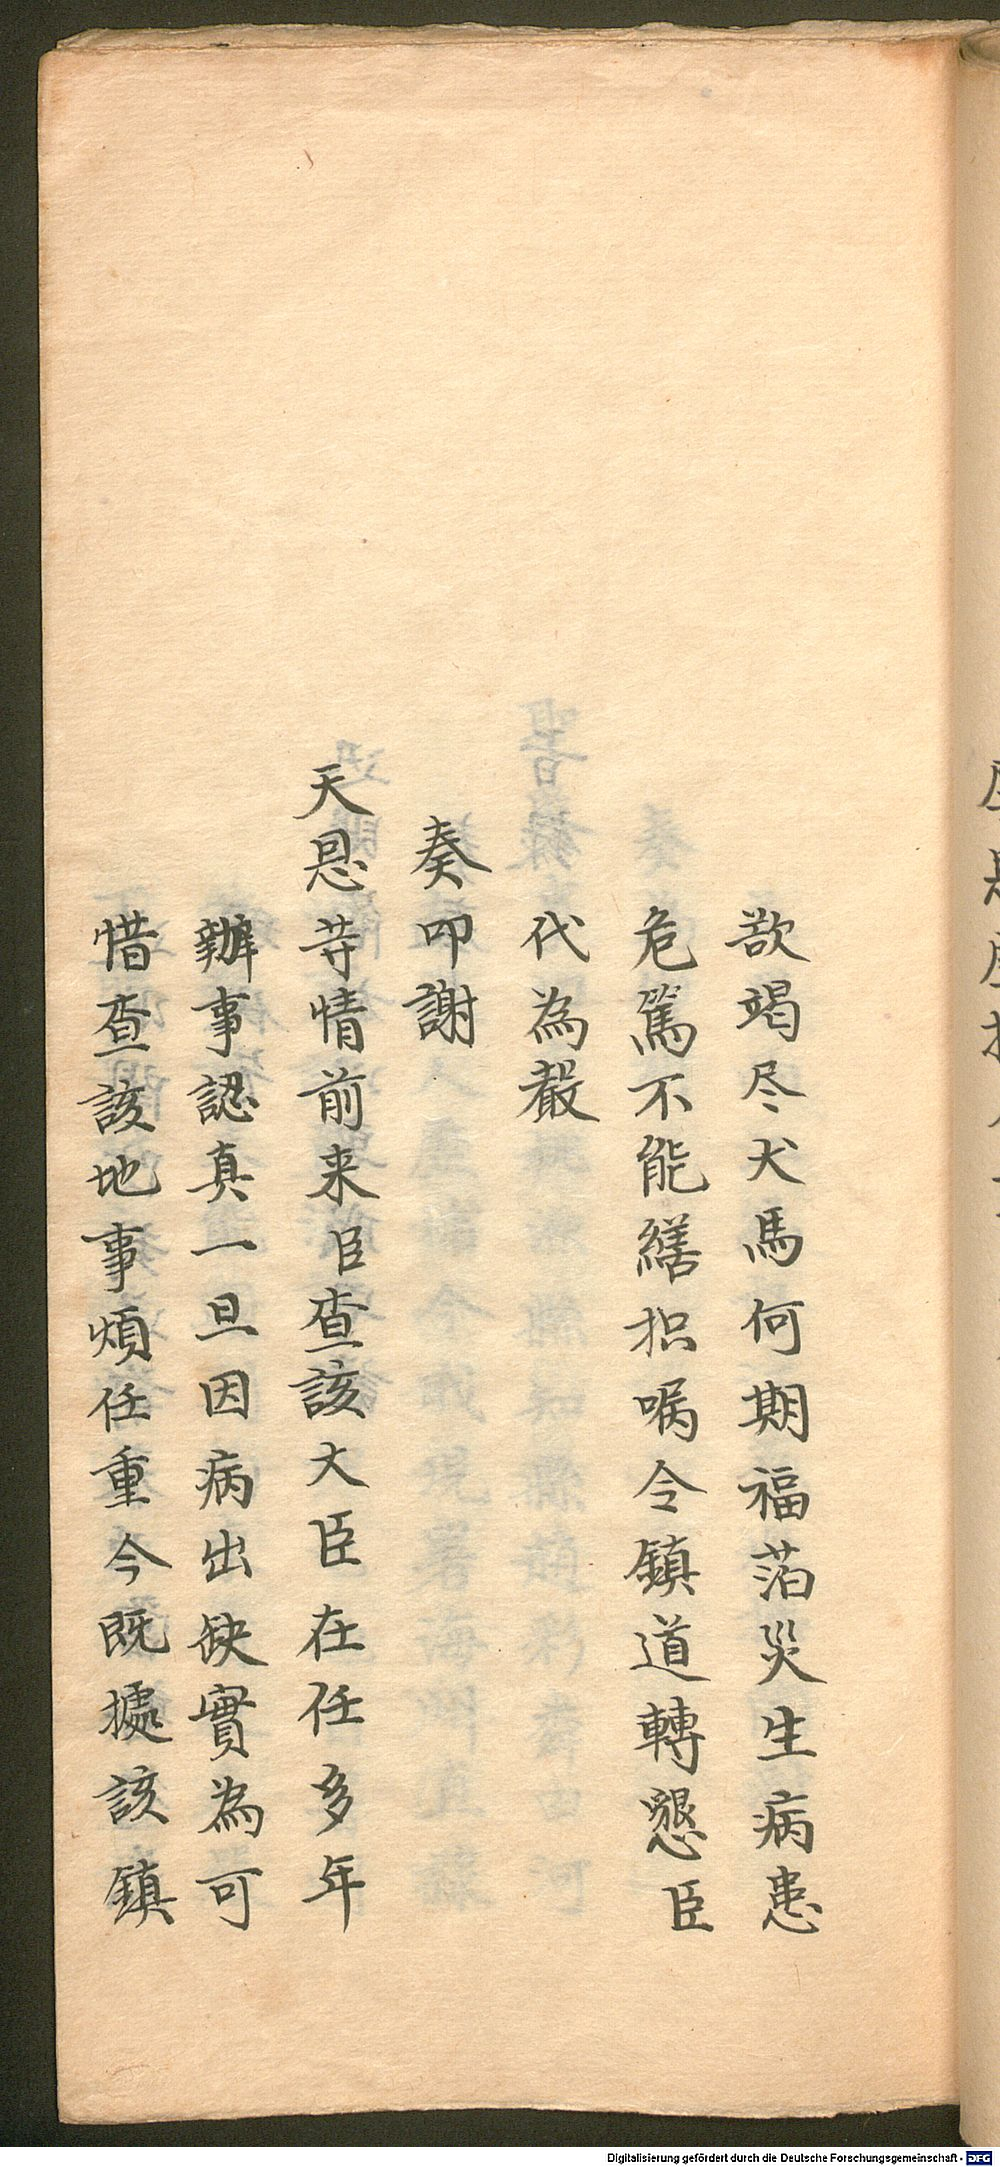 欲竭尽犬馬何期福萡災生病患
危篤不能繕摺嘱令鎮道轉懇臣
代為嚴
奏叩謝
天恩等情前来臣查該大臣在任多年
辦事認真一旦因病出缺實為可
惜查該地事煩任重今既據該鎮
Digitalisierung gefördert durch die Deutsche Forschungsgemeinschaft - DFG